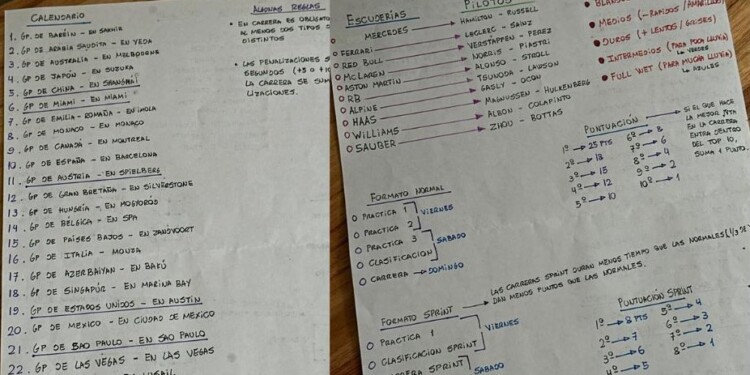 CALENDARIO
1. GP. DE BARÉIN - EN SAKHIR
2. GP. DE ARABIA SAUDITA - EN YEDA
3. GP DE AUSTRALIA - EN MELBOURNE
4. GP DE JAPÓN - EN SUZUKA
5. GP DE CHINA - EN SHANGHAI
6. GP DE MIAMI - EN MIAMI
7. GP DE EMILIA-ROMAÑA - EN IMOLA
8. GP DE MONACO - EN MONACO
9. GP DE CANADÁ - EN MONTREAL
10. GP DE ESPAÑA - EN BARCELONA
11. GP DE AUSTRIA - EN SPIELBERG
12. GP DE GRAN BRETAÑA - EN SILVERSTONE
13. GP DE HUNGRÍA - EN MOGYORÓD
14. GP DE BÉLGICA - EN SPA
15. GP DE PAÍSES BAJOS - EN ZANDVOORT
16. GP DE ITALIA - MONZA
17. GP DE AZERBAIYAN - EN BAKÚ
18. GP DE SINGAPÚR - EN MARINA BAY
19. GP DE ESTADOS UNIDOS - EN AUSTIN
20. GP DE MEXICO - EN CIUDAD DE MEXICO
21. GP DE SAO PAULO - EN SAO PAULO
22. GP DE LAS VEGAS - EN LAS VEGAS
ALGUNAS REGLAS
• EN CARRERA ES OBLIGAT
AL MENOS DOS TIPOS D
DISTINTOS
• LAS PENALIZACIONES S
SEGUNDOS (+5 O +10
LA CARRERA SE SUM
LIZACIONES.
ESCUDERÍAS
PILOTOS
MERCEDES → HAMILTON - RUSSELL
FERRARI → LECLERC - SAINZ
RED BULL → VERSTAPPEN - PEREZ
MCLAREN → NORRIS - PIASTRI
ASTON MARTIN → ALONSO - STROLL
RB → TSUNODA - LAWSON
ALPINE → GASLY - OCON
HAAS → MAGNUSSEN - HULKENBERG
WILLIAMS → ALBON - COLAPINTO
SAUBER → ZHOU - BOTTAS
• MEDIOS (- RAPIDOS / AMARILLOS)
• DUROS (+ LENTOS / GRISES)
• INTERMEDIOS (PARA POCA LLUVIA)
↳ VERDES
• FULL WET (PARA MUCHA LLUVIA)
↳ AZULES
PUNTUACIÓN
1º → 25 PTS
2º → 18
3º → 15
4º → 12
5º → 10
6º → 8
7º → 6
8º → 4
9º → 2
10º → 1
SI EL QUE HACE
LA MEJOR VTA
EN LA CARRERA
ENTRA DENTRO
DEL TOP 10,
SUMA 1 PUNTO.
FORMATO NORMAL
PRACTICA 1
PRACTICA 2
VIERNES
PRACTICA 3
CLASIFICACION
SABADO
CARRERA → DOMINGO
FORMATO SPRINT
LAS CARRERAS SPRINT DURAN MENOS TIEMPO QUE LAS NORMALES (1/3 DE
DAN MENOS PUNTOS QUE LAS NORMALES.
PRACTICA 1
CLASIFICACION SPRINT
VIERNES
RERA SPRINT
SABADO
PUNTUACIÓN SPRINT
1º → 8 PTS
2º → 7
3º → 6
4º → 5
5º → 4
6º → 3
7º → 2
8º → 1